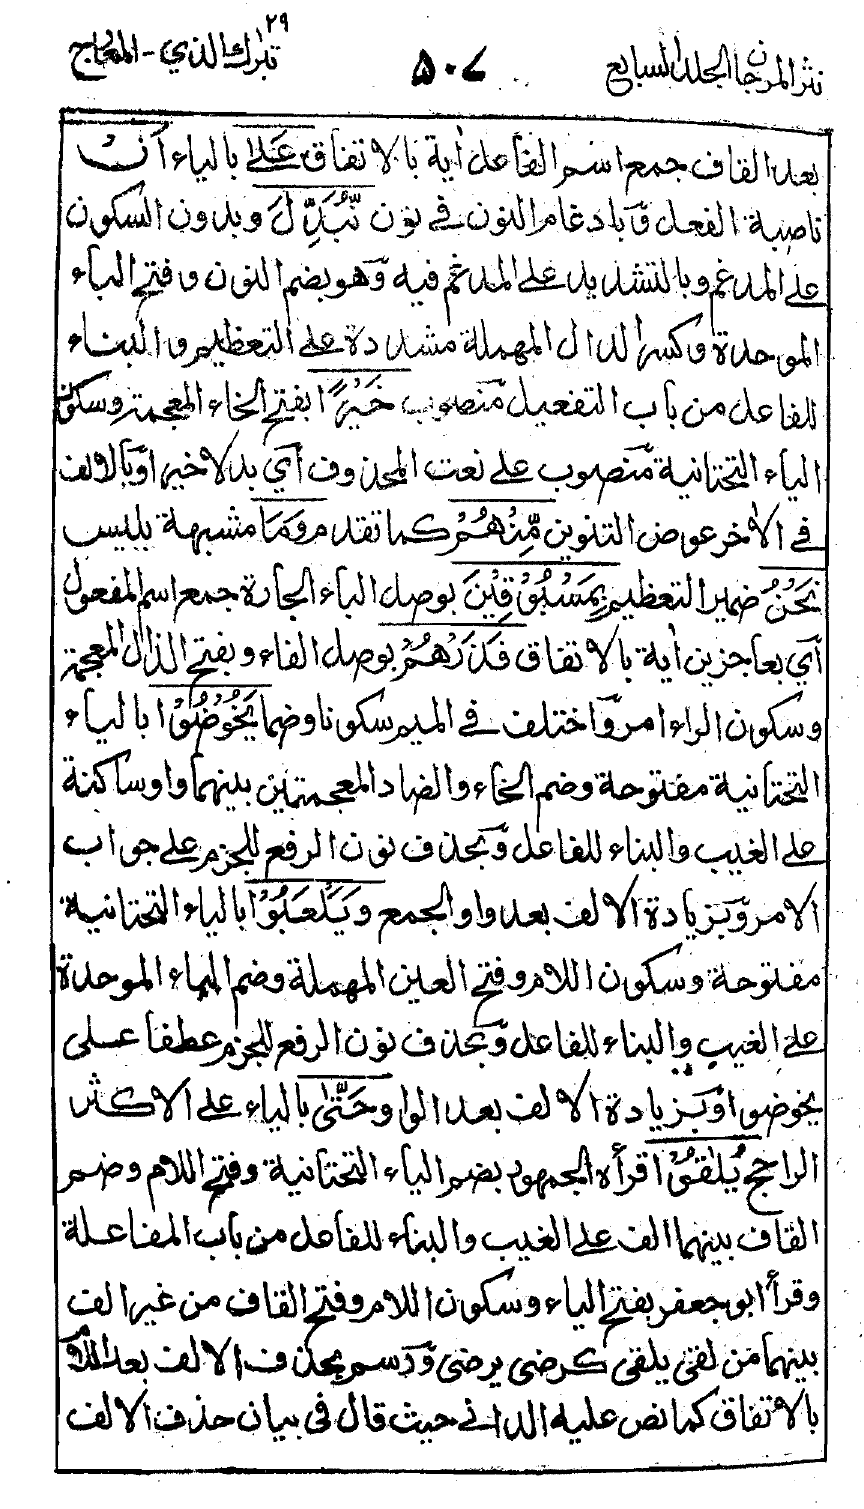 نثر المرجان الجلد السابع
٥٠٧
تبارك الذي ٢٩ - المعارج
بعد القاف جمع اسم الفاعل اٰية بالاتفاق عَلىٰ بالياء اَنْ
ناصبة الفعل وَبادغام النون في نون نُّبَدِّلَ وبدون السكون
على المدغم وبالتشديد على المدغم فيه وَهو بضم النون وفتح الباء
الموحدة وكسر الدال المهملة مشددة على التعظيم والبناء
للفاعل من باب التفعيل منصوب خَيْرًا بفتح الخاء المعجمة وسكون
الياء التحتانية منصوب على نعت المحذوف أي بدلا خيرا وَبالالف
في الاٰخر عوض التنوين مِّنْهُمْ كما تقدم وَمَا مشبهة بليس
نَحْنُ ضمير التعظيم بِمَسْبُوْقِيْنَ بوصل الباء الجارة جمع اسم المفعول
أي بعاجزين اٰية بالاتفاق فَذَرْهُمْ بوصل الفاء وبفتح الذال المعجمة
وسكون الراء امر وَاختلف في الميم سكونا وضما يَخُوْضُوْا بالياء
التحتانية مفتوحة وضم الخاء والضاد المعجمتين بينهما واو ساكنة
على الغيب والبناء للفاعل وَبحذف نون الرفع للجزم على جواب
الامر وَبزيادة الالف بعد واو الجمع وَيَلْعَبُوْا بالياء التحتانية
مفتوحة وسكون اللام وفتح العين المهملة وضم الباء الموحدة
على الغيب والبناء للفاعل وَبحذف نون الرفع للجزم عطفا على
يخوضوا وَبزيادة الالف بعد الواو حَتّٰى بالياء على الاكثر
الراجح يُلٰقُوْا قرأه الجمهور بضم الياء التحتانية وفتح اللام وضم
القاف بينهما الف على الغيب والبناء للفاعل من باب المفاعلة
وقرأ ابو جعفر بفتح الياء وسكون اللام وفتح القاف من غير الف
بينهما من لقى يلقى كرضى يرضى وَرسم بحذف الالف بعد اللام
بالاتفاق كما نص عليه الداني حيث قال في بيان حذف الالف